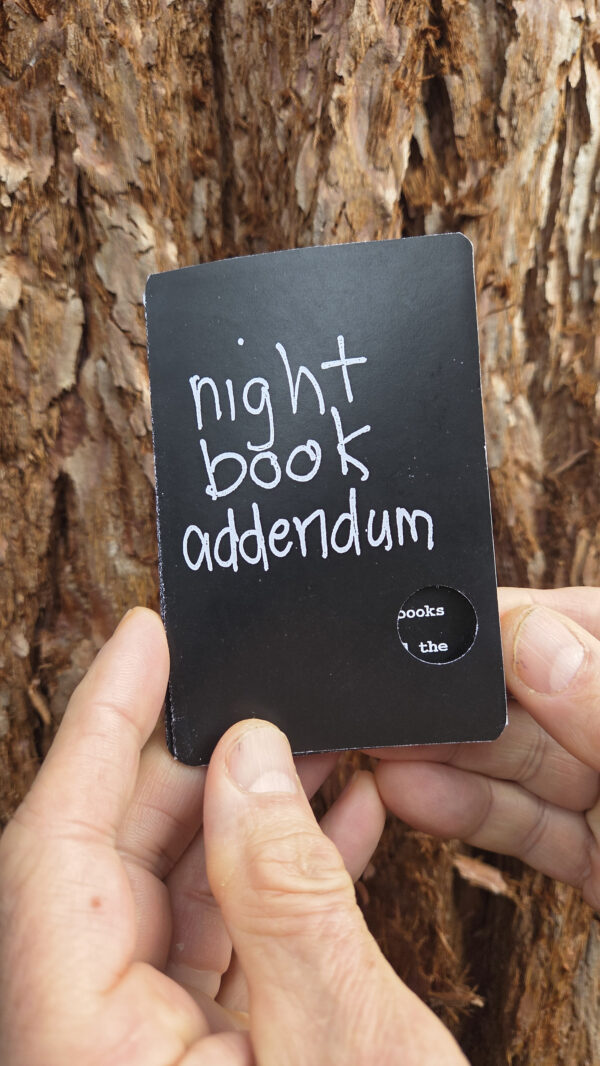 night
book
addendum
books
the